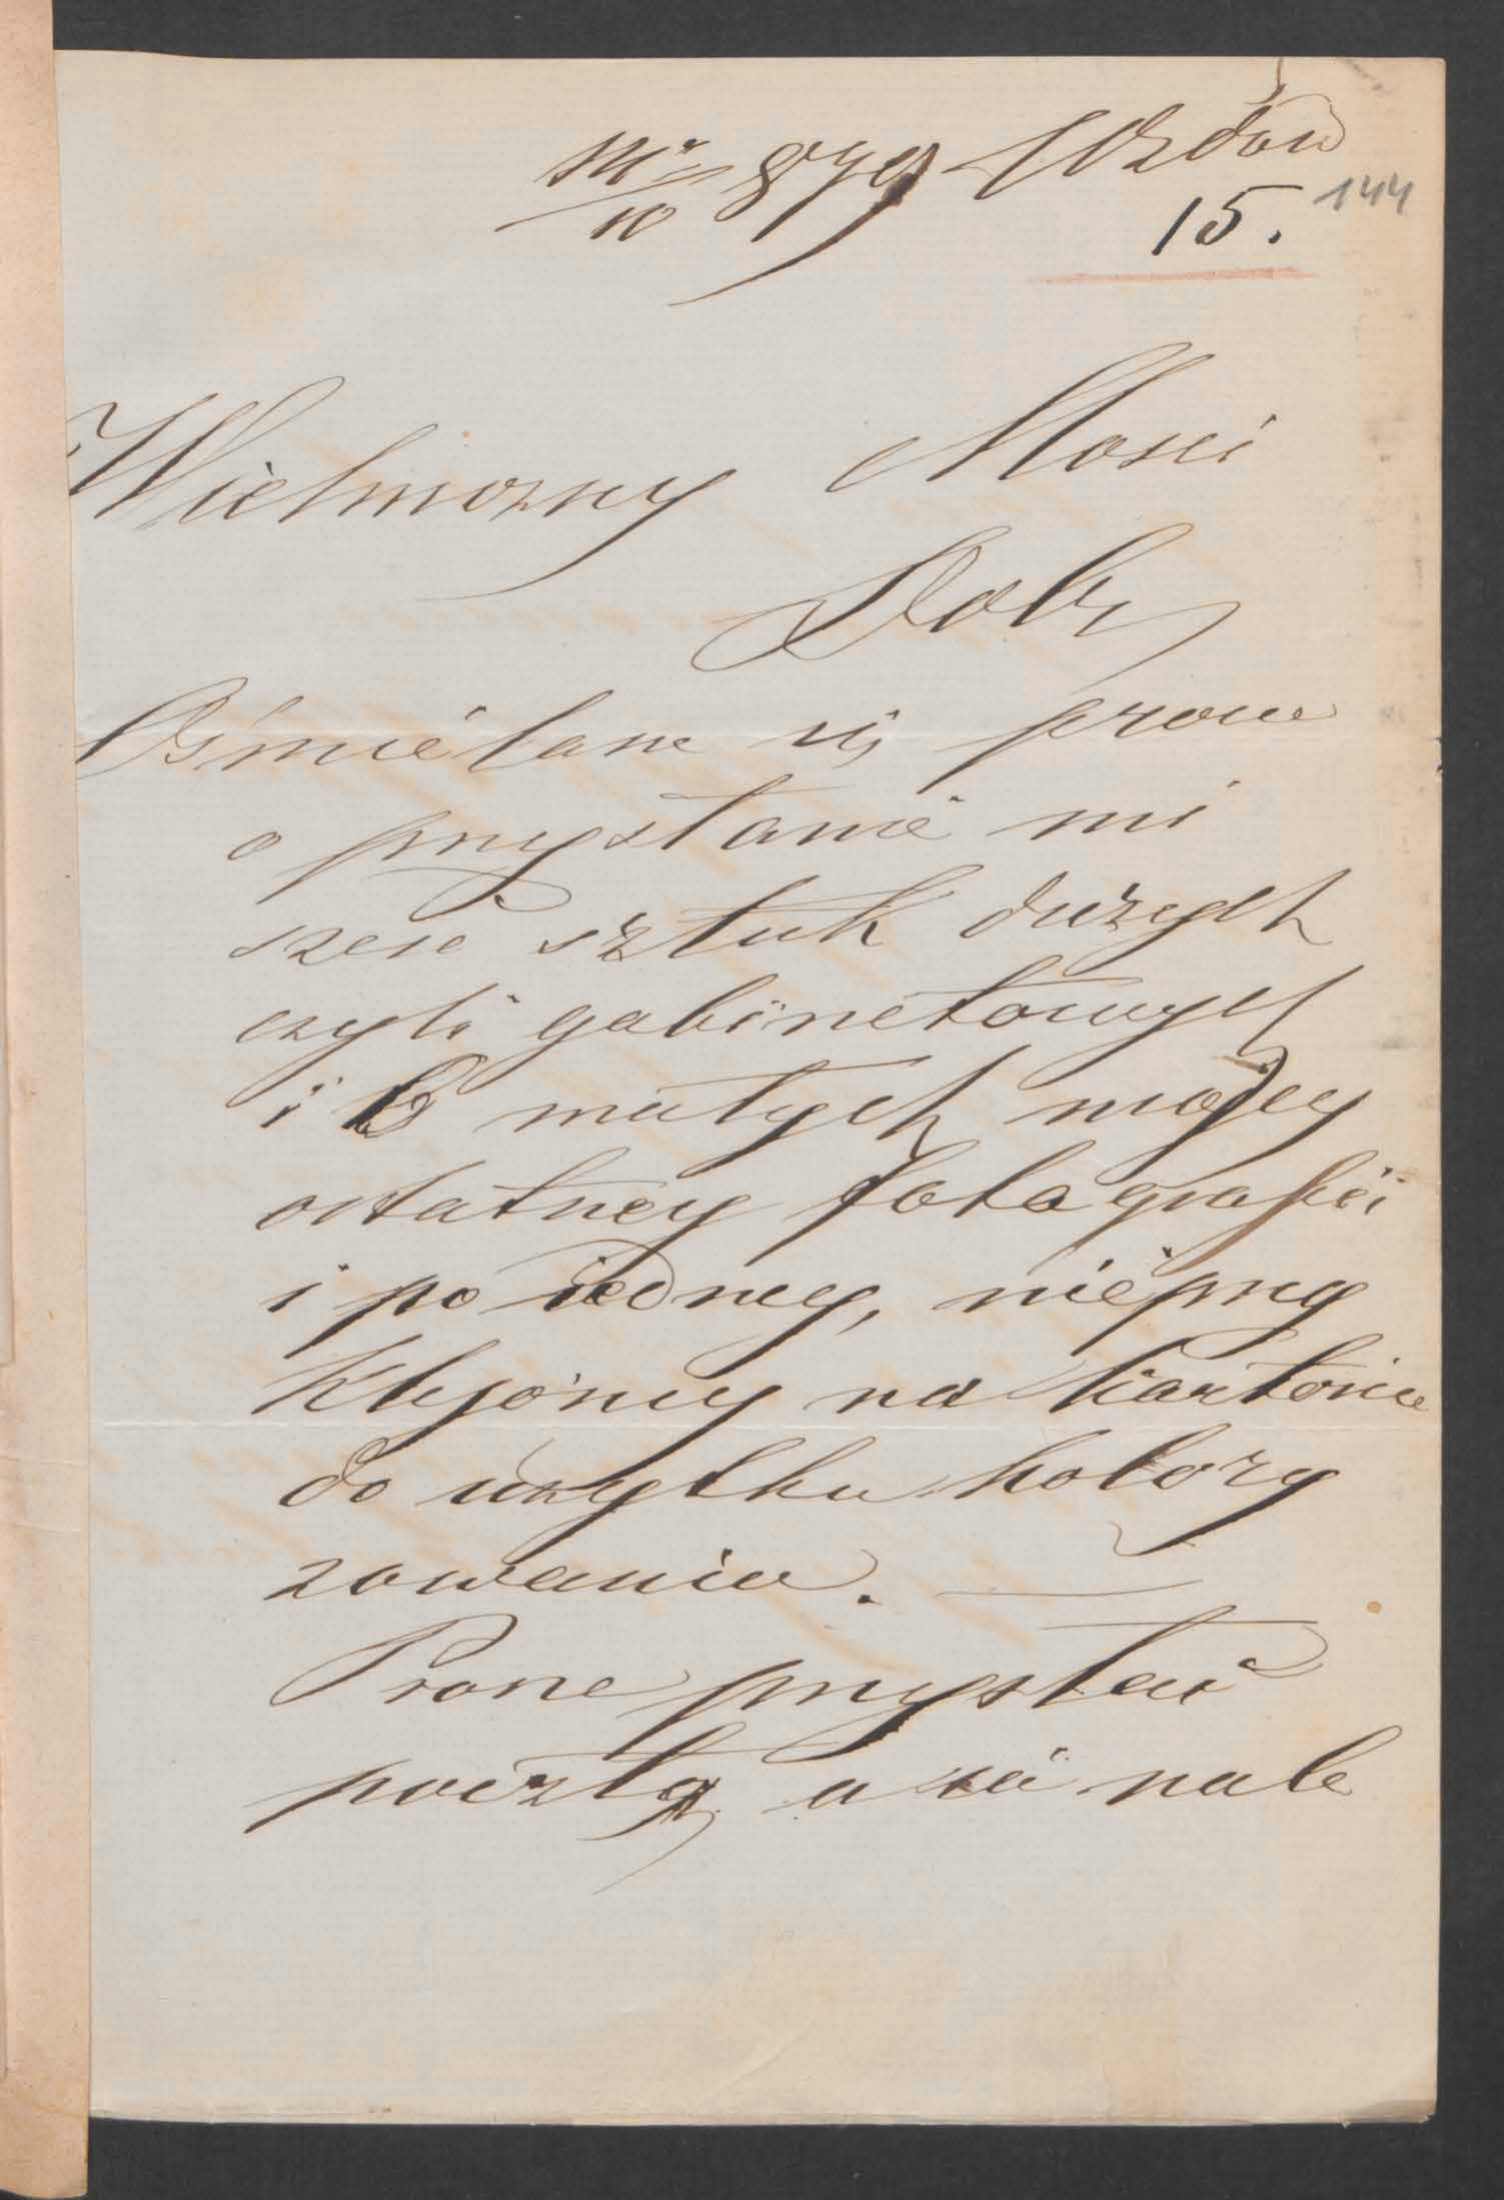 10 879 Uzdów
144
15.
Wielmożny Mości
Dobr
Ośmielam się prosić
o przysłanie mi
sześć sztuk dużych
czyli gabinetowych
i 6 małych mojey
ostatney fotografii
i po iedney, nieprzy
klejoney na kartonie
do użytku kolory
zowania.
Proszę przysłać
pocztą a zá nale